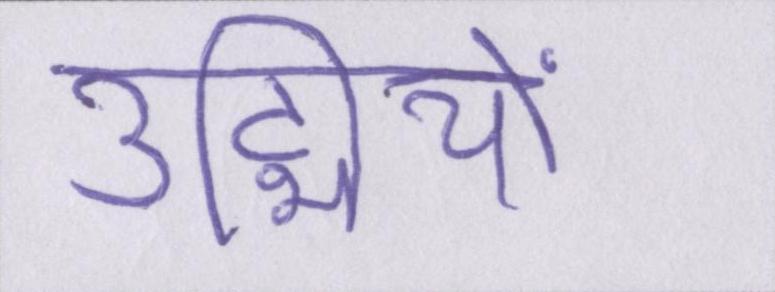 उद्मियों